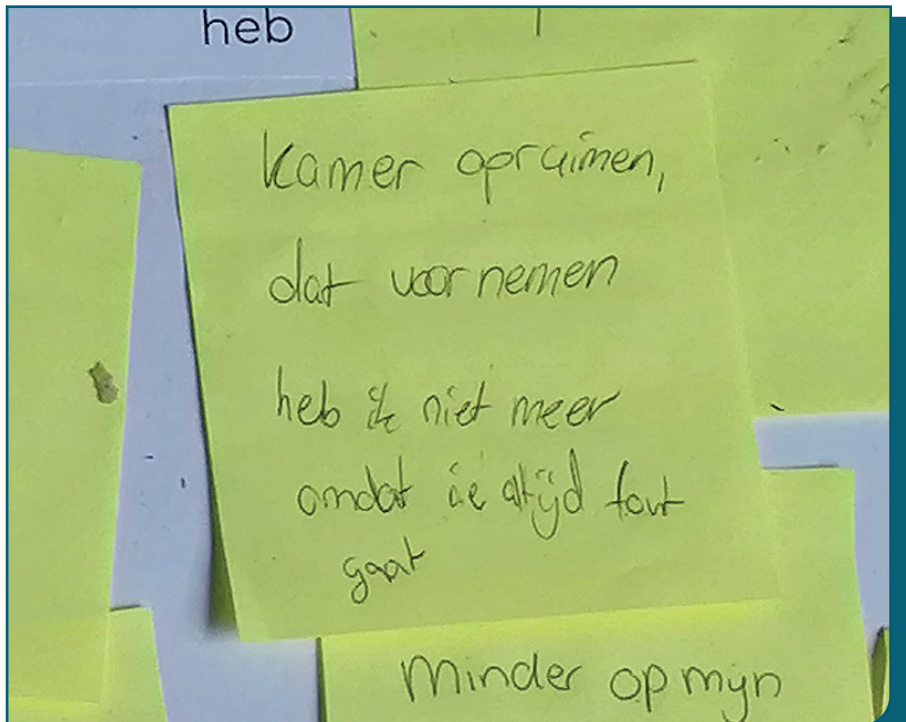 heb
Kamer opruimen,
dat voornemen
heb ik niet meer
omdat ie altijd fout
gaat
Minder op mijn